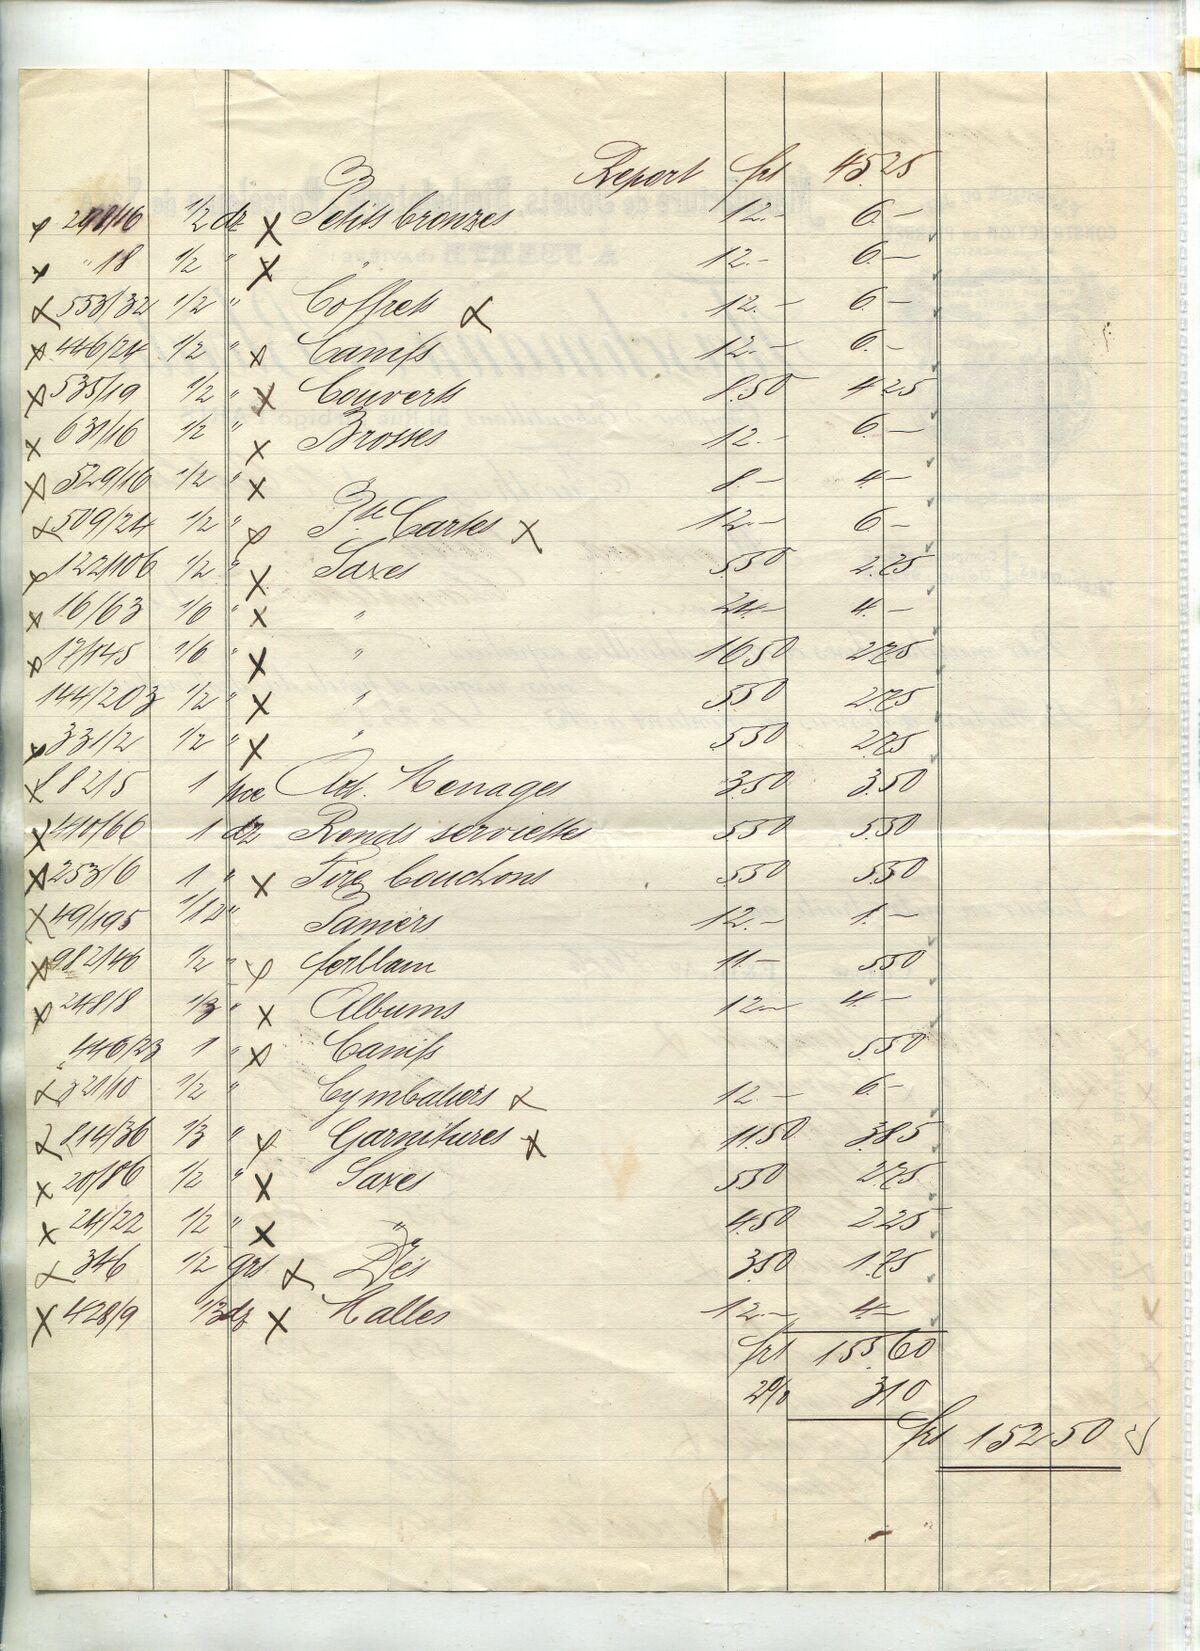 Report frs 45.25
298/16 1/2 dz Petits bronzes 12.- 6.-
" 18 1/2 " " 12.- 6.-
553/32 1/2 " Coffrets 12.- 6.-
446/24 1/2 " Canifs 12.- 6.-
535/19 1/2 " Couverts 8.50 4.25
631/16 1/2 " Brosses 12.- 6.-
529/16 1/2 " 8.- 4.-
509/24 1/2 " Pte Cartes 12.- 6.-
122/106 1/2 " Saxes 5.50 2.75
16/63 1/6 " " 24.- 4.-
17/145 1/6 " " 16.50 2.75
144/203 1/2 " " 5.50 2.75
331/2 1/2 " " 5.50 2.75
8215 1 pce Art. Menages 3.50 3.50
410/66 1 dz Ronds serviettes 5.50 5.50
253/6 1 " Tire bouchons 5.50 5.50
49/195 1/12 " Paniers 12.- 1.-
982/40 1/2 " ferblanc 11.- 5.50
248/8 1/3 " Albums 12.- 4.-
446/23 1 " Canifs 5.50
321/10 1/2 " Cymbaliers 12.- 6.-
814/36 1/3 " Garnitures 11.50 3.85
20/86 1/2 " Saxes 5.50 2.75
24/22 1/2 " " 4.50 2.25
346 1/2 grs Dés 3.50 1.75
428/9 1/3 dz Malles 12.- 4.-
frs 155.60
2% 3.10
frs 152.50